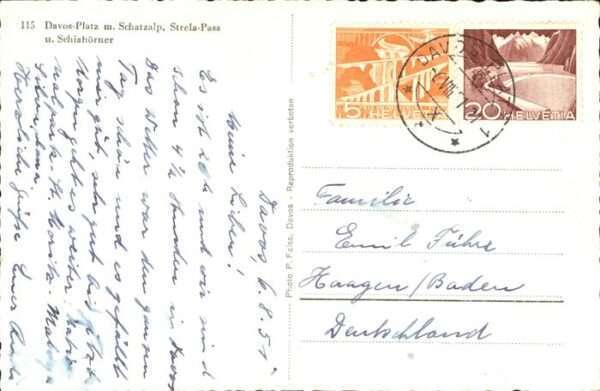 115 Davos-Platz m. Schatzalp, Strela-Pass
u. Schiahörner
Davos, 6.8.51
Meine Lieben!
Es ist 20 h und wir sind
schon 4 ½ Stunden in Davos
Das Wetter war den ganzen
Tag schön und es gefällt
mir gut, sehr gut bis jetzt.
Morgen geht es weiter:
nalpark St. Moritz - Maloja
Herzliche Grüße Euer
Photo P. Faiss, Davos - Reproduktion verboten
5
HELVETIA
20 HELVETIA
DAVOS
Familie
Emil Führe
Haagen/Baden
Deutschland